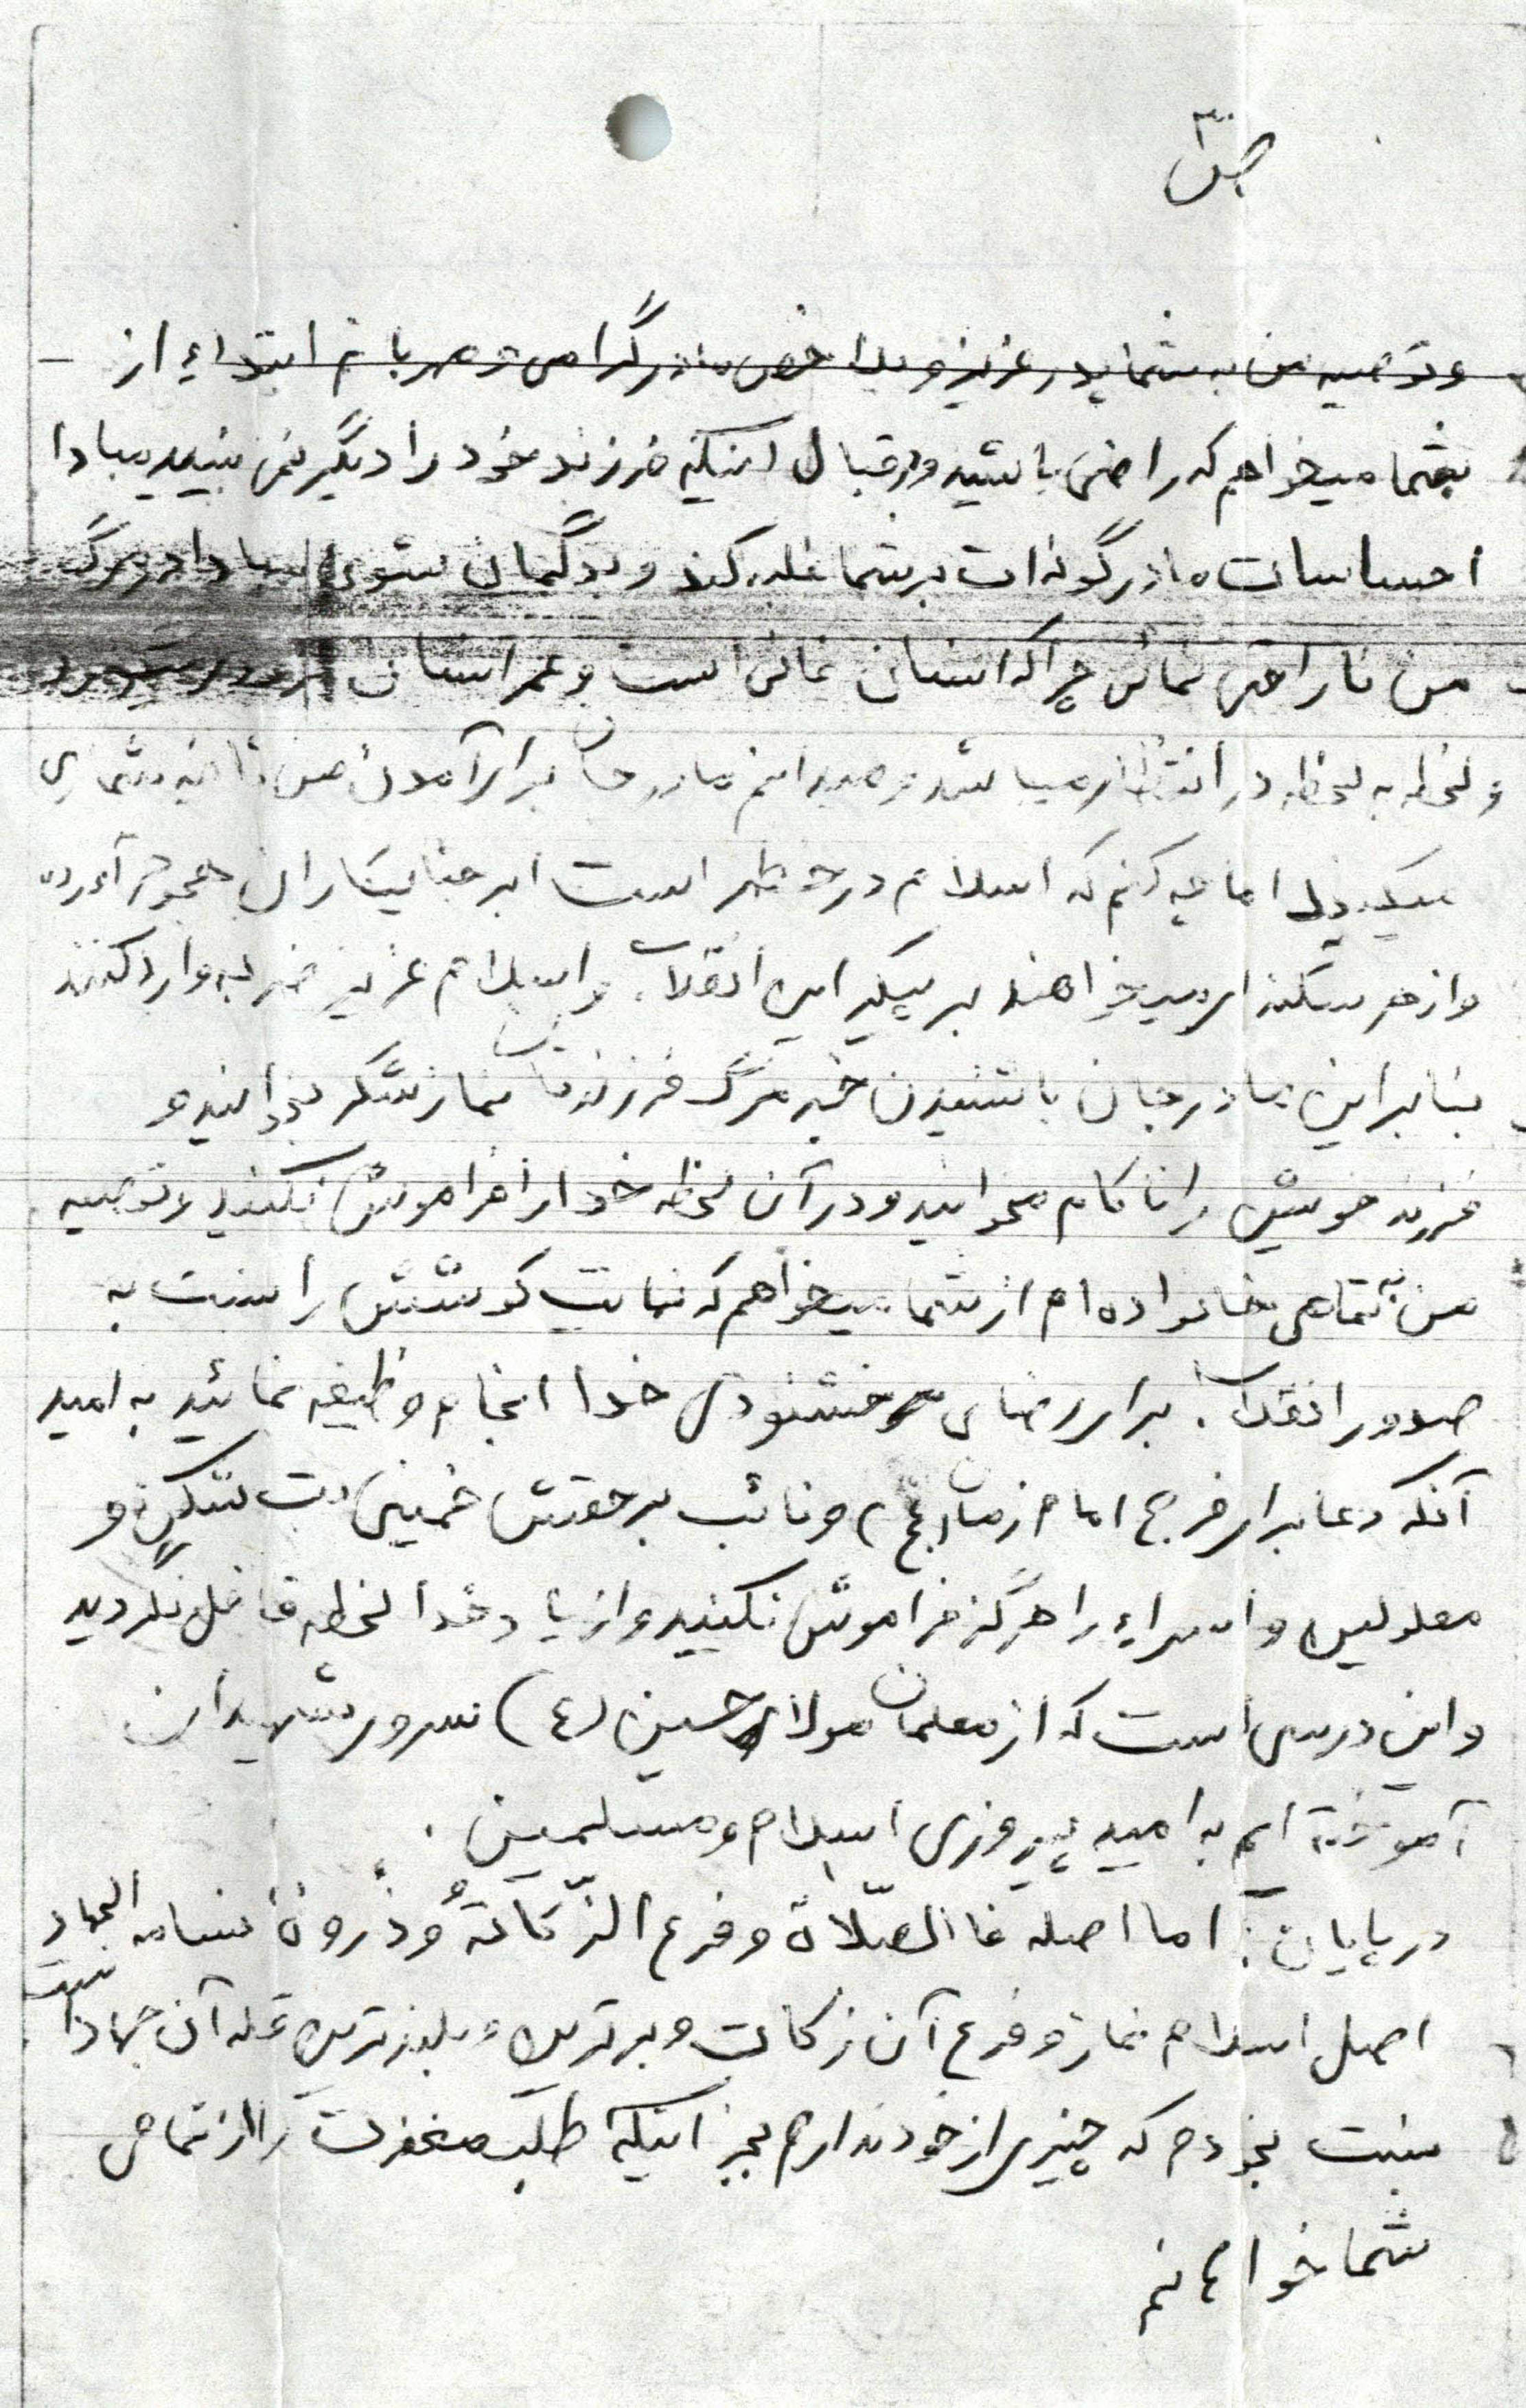 ص ۳
و توصیه من به شما پدر عزیز و بلاخص مادر گرامی و مهربانم ابتداء از
شما میخواهم که راضی باشید و در قبال اینکه فرزند خود را دیگر نمی بینید مبادا
احساسات مادر گونه ات بر شما غلبه کند و بدگمان شوی مبادا در مرگ
من ناراحتی نمائی چرا که انسان فانی است و عمر انسان
و لحظه به لحظه در انتظار میباشد و میدانم مادر جان برای آمدن من ثانیه شماری
میکردی اما چه کنم که اسلام در خطر است ابر جنایتکاران هجوم آورده
و از هر سنگر میخواهند بر پیکر این انقلاب و اسلام عزیز ضربه وارد کنند
بنابراین مادر جان با شنیدن خبر مرگ فرزندتان نماز شکر بخوانید و
فرزند خویش را ناکام نخوانید و در آن لحظه خدا را فراموش نکنید و توصیه
من به تمامی خانواده ام از شما میخواهم که نهایت کوشش را نسبت به
صدور انقلاب برای رضای خشنودی خدا انجام وظیفه نمائید به امید
آنکه دعا برای فرج امام زمان (عج) و نائب بر حقش خمینی بت شکن و
معلولین و اسراء را هرگز فراموش نکنید و از یاد خدا لحظه غافل نگردید
و این درسی است که از معلمان مولای حسین (ع) سرور شهیدان
آموخته ایم به امید پیروزی اسلام و مسلمین .
در پایان : اما اصله فا الصّلاة و فرع الزّکاتهُ وَ ذُروة سنامه الجهاد
اصل اسلام نمازو فرع آن زکات و برترین و بلندترین قله آن جهاد است
نسبت بخودم که چیزی از خود ندارم بجز اینکه طلب مغفرت را از تمامی
شما خواهانم